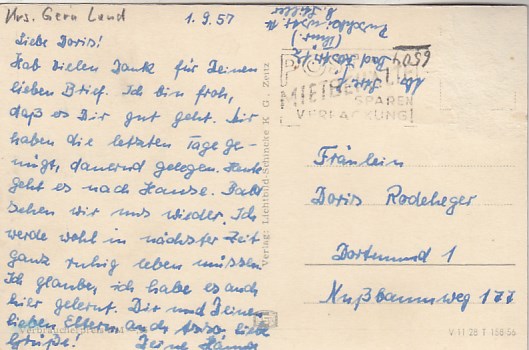 Krs. Gera Land
1.9.57
Liebe Doris!
Hab vielen Dank für Deinen
lieben Brief. Ich bin froh,
daß es Dir gut geht. Wir
haben die letzten Tage ge-
nügt, dauernd gelegen. Heute
geht es nach Hause. Bald
sehen wir uns wieder. Ich
werde wohl in nächster Zeit
ganz ruhig leben müssen.
Ich glaube, ich habe es auch
hier gelernt. Dir und Deinen
lieben Eltern auch
Grüße! Deine
Verlag: Lichtbild-Schincke K. G., Zeitz
6504
Bad Köstritz
(Thür.)
SPAREN
VERPACKUNG!
Fräulein
Doris Rodeheger
Dortmund 1
Nußbaumweg 177
V 11 28 T 158 56